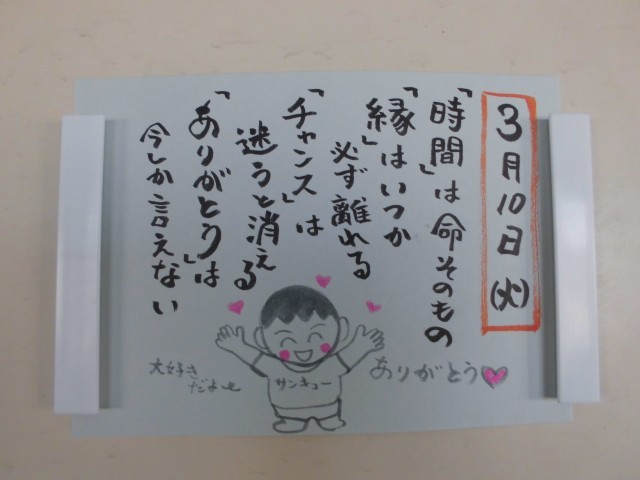 3月10日(火)
「時間」は命そのもの
「縁」はいつか
必ず離れる
「チャンス」は
迷うと消える
「ありがとう」は
今しか言えない
大好き
だよ〜
サンキュー
ありがとう